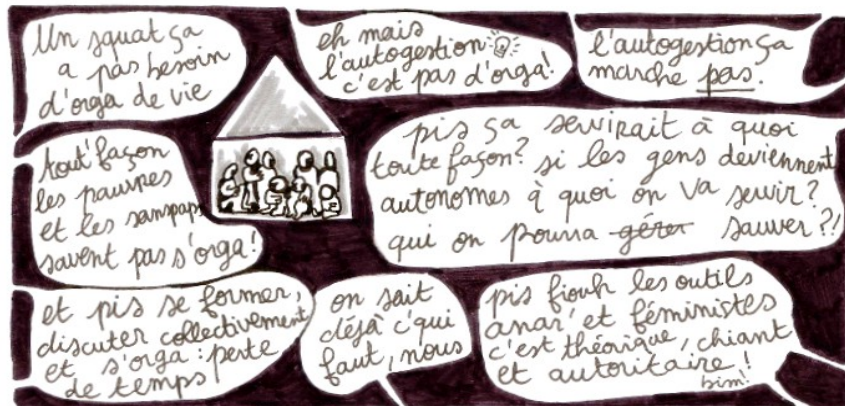 Un squat ça
a pas besoin
d'orga de vie
eh mais
l'autogestion
c'est pas d'orga!
l'autogestion ça
marche pas.
tout'façon
les pauvres
et les sanspap
savent pas s'orga!
pis ça servirait à quoi
toute façon? si les gens deviennent
autonomes à quoi on va servir?
qui on pourra gérer sauver?!
et pis se former,
discuter collectivement
et s'orga: perte
de temps
on sait
déjà c'qui
faut, nous
pis fiouh les outils
anar' et féministes
c'est théorique, chiant
et autoritaire!
bim!